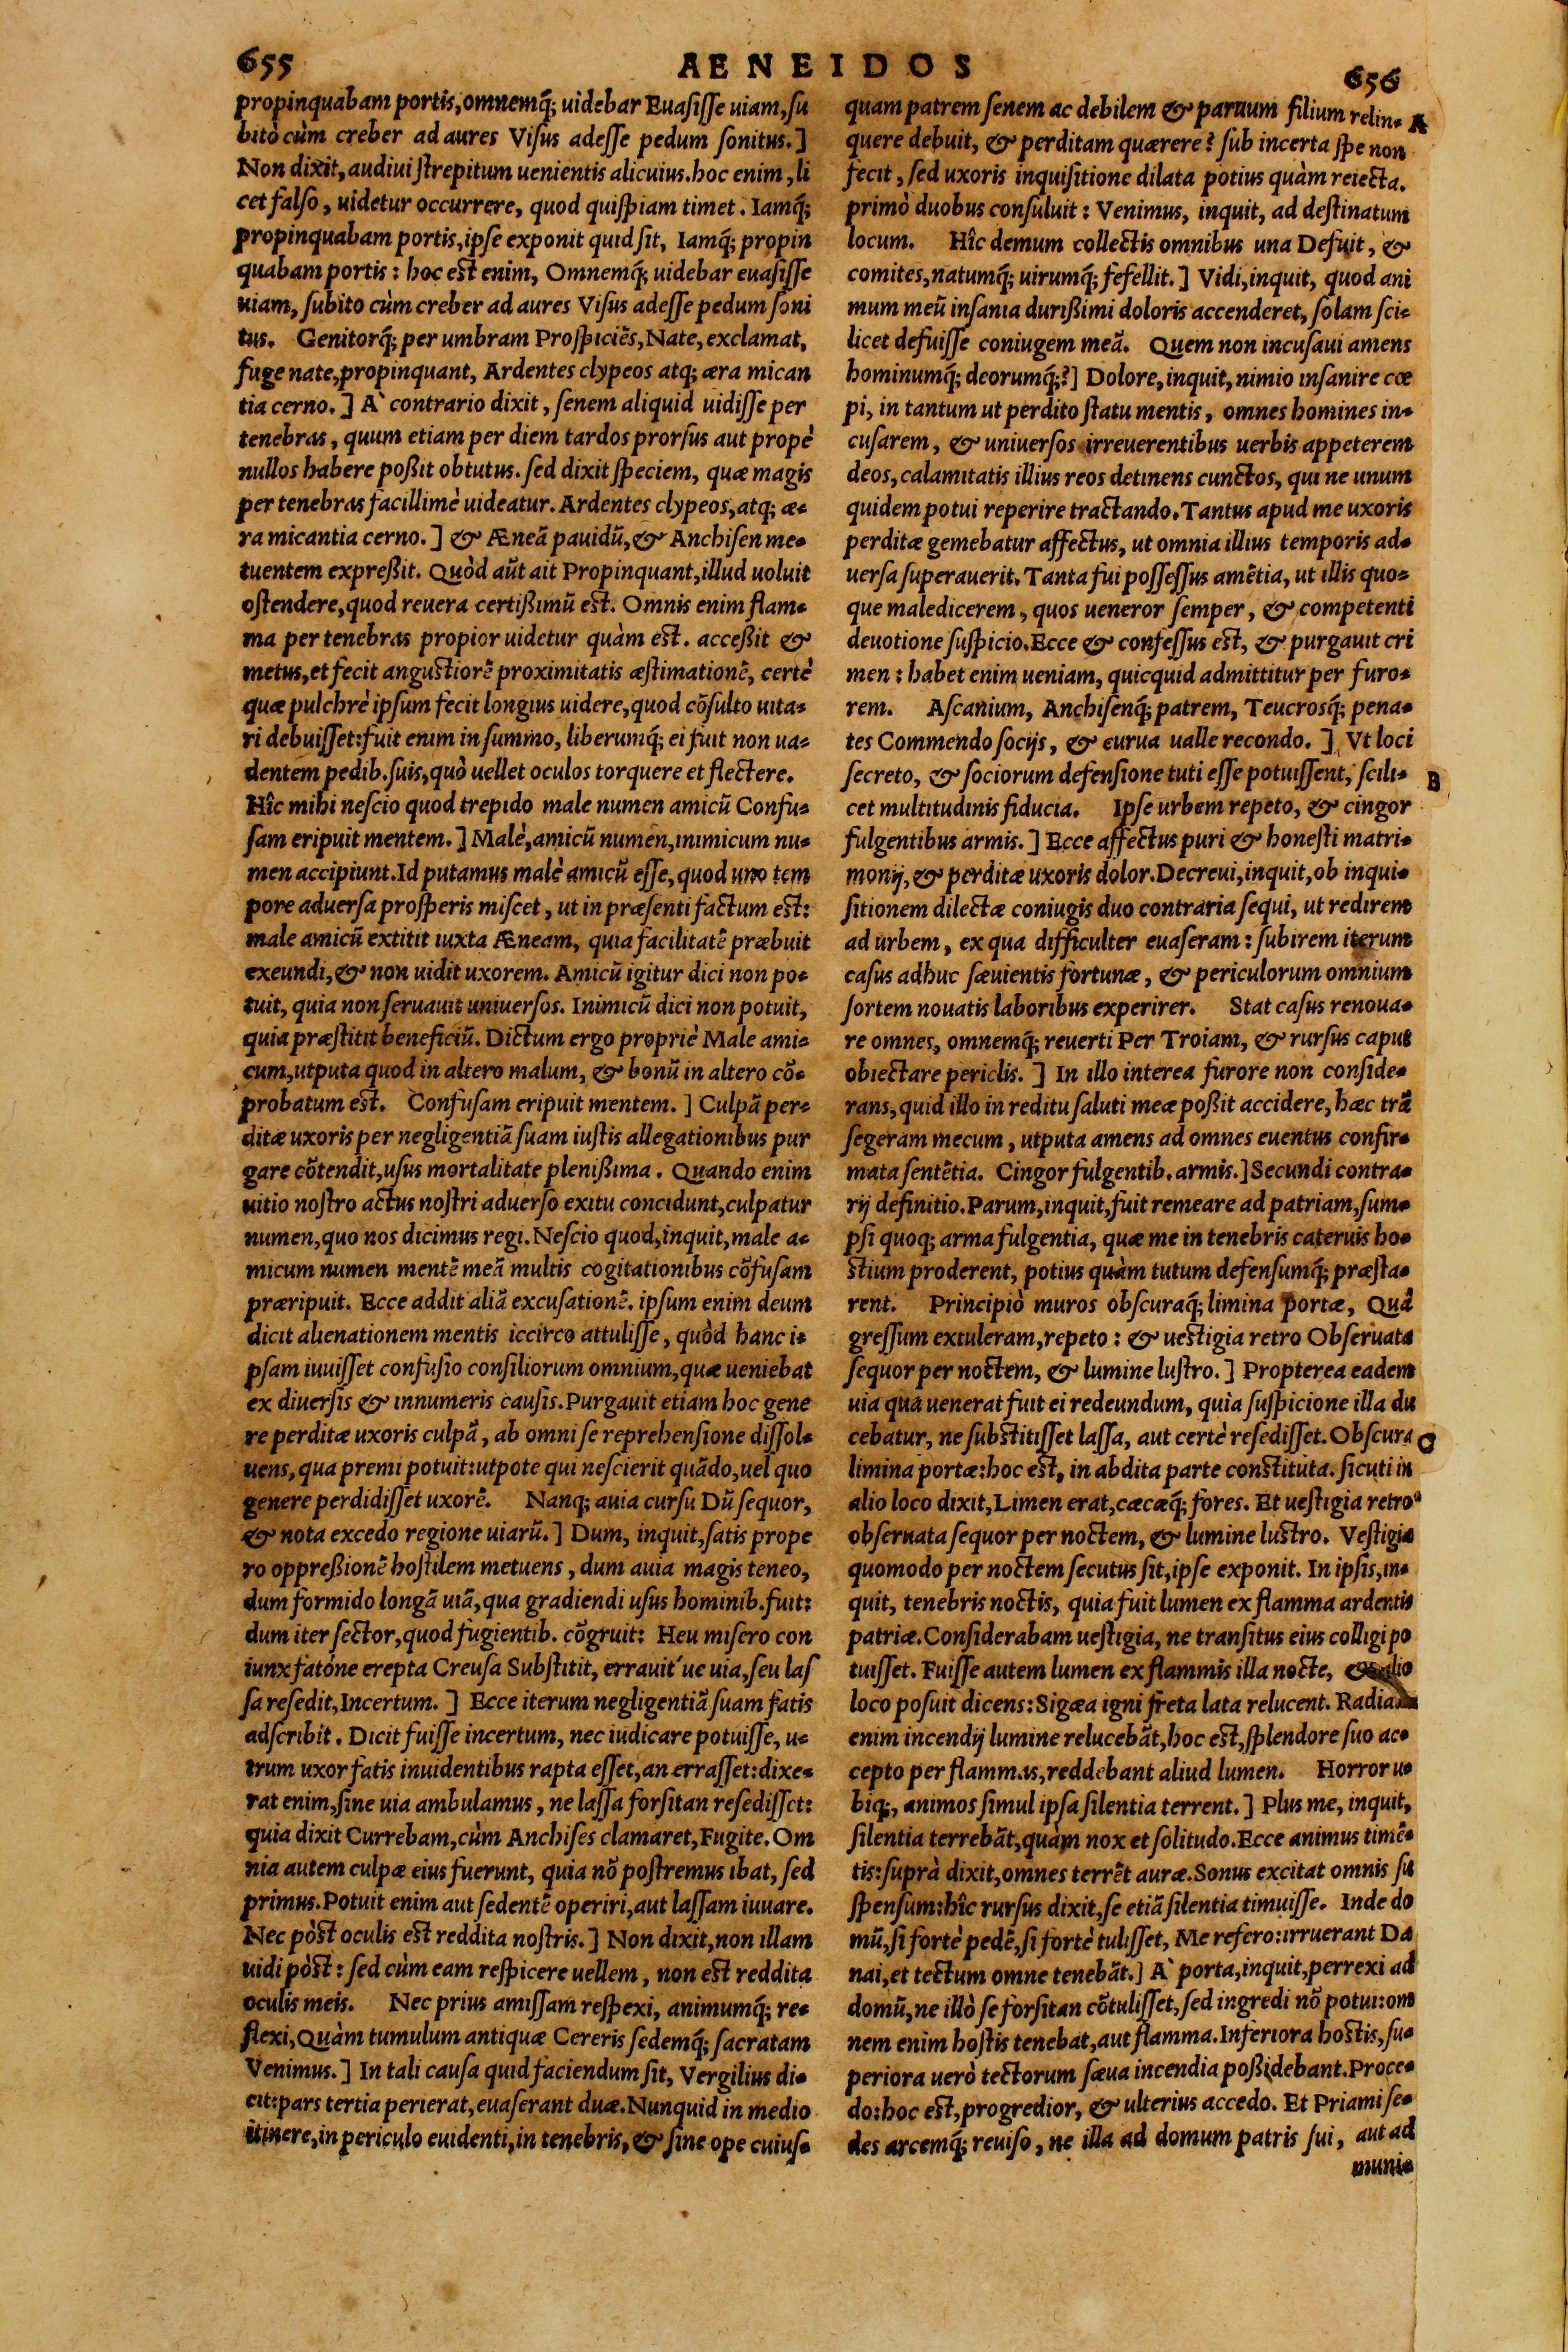 655
AENEIDOS
656
propinquabam portis, omnemq́; uidebar Euasiſſe uiam, ſu
bitò cùm creber ad aures Viſus adeſſe pedum ſonitus.]
Non dixit, audiui ſtrepitum uenientis alicuius. hoc enim, li
cet falſo, uidetur occurrere, quod quiſpiam timet. Iamq́;
propinquabam portis, ipſe exponit quid ſit, Iamq́; propin
quabam portis: hoc est enim, Omnemq́; uidebar euaſiſſe
uiam, ſubito cùm creber ad aures Viſus adeſſe pedum ſoni
tus. Genitorq́; per umbram Proſpiciēs, Nate, exclamat,
fuge nate, propinquant, Ardentes clypeos atq; æra mican
tia cerno.] A` contrario dixit, ſenem aliquid uidiſſe per
tenebras, quum etiam per diem tardos prorſus aut propè
nullos habere poßit obtutus. ſed dixit ſpeciem, quæ magis
per tenebras facillimè uideatur. Ardentes clypeos, atq; æ-
ra micantia cerno.] & Æneā pauidū, & Anchiſen me-
tuentem expreßit. Quòd aūt ait Propinquant, illud uoluit
oſtendere, quod reuera certißimū est. Omnis enim flam-
ma per tenebras propior uidetur quàm est. acceßit &
metus, et fecit anguſtiorē proximitatis æſtimationē, certè
quæ pulchrè ipſum fecit longius uidere, quod cōſulto uita-
ri debuiſſet: fuit enim in ſummo, liberumq́; ei fuit non ua-
dentem pedib. ſuis, quò uellet oculos torquere et flectere.
Hîc mihi neſcio quod trepido male numen amicū Confu-
ſam eripuit mentem.] Malè, amicū numen, inimicum nu-
men accipiunt. Id putamus malè amicū eſſe, quod uno tem
pore aduerſa proſperis miſcet, ut in præſenti factum est:
male amicū extitit iuxta Æneam, quia facilitatē præbuit
exeundi, & non uidit uxorem. Amicū igitur dici non po-
tuit, quia non ſeruauit uniuerſos. Inimicū dici non potuit,
quia præſtitit beneficiū. Dictum ergo propriè Male ami-
cum, utputa quod in altero malum, & bonū in altero cō-
probatum est. Confuſam eripuit mentem.] Culpā per-
ditæ uxoris per negligentiā ſuam iuſtis allegationibus pur
gare cōtendit, uſus mortalitate plenißima. Quando enim
uitio noſtro actus noſtri aduerſo exitu concidunt, culpatur
numen, quo nos dicimus regi. Neſcio quod, inquit, male a-
micum numen mentē meā multis cogitationibus cōfuſam
præripuit. Ecce addit aliā excuſationē. ipſum enim deum
dicit alienationem mentis iccirco attuliſſe, quòd hanc i-
pſam iuuiſſet confuſio conſiliorum omnium, quæ ueniebat
ex diuerſis & innumeris cauſis. Purgauit etiam hoc gene
re perditæ uxoris culpā, ab omni ſe reprehenſione diſſol-
uens, qua premi potuit: utpote qui neſcierit quādo, uel quo
genere perdidiſſet uxorē. Nanq; auia curſu Dū ſequor,
& nota excedo regione uiarū.] Dum, inquit, ſatis prope
ro oppreßionē hoſtilem metuens, dum auia magis teneo,
dum formido longā uiā, qua gradiendi uſus hominib. fuit:
dum iter ſector, quod fugientib. cōgruit: Heu miſero con
iunx fatóne erepta Creuſa Subſtitit, errauit´ue uia, ſeu laſ
ſa reſedit, Incertum.] Ecce iterum negligentiā ſuam fatis
adſcribit. Dicit fuiſſe incertum, nec iudicare potuiſſe, u-
trum uxor fatis inuidentibus rapta eſſet, an erraſſet: dixe-
rat enim, ſine uia ambulamus, ne laſſa forſitan reſediſſet:
quia dixit Currebam, cùm Anchiſes clamaret, Fugite. Om
nia autem culpæ eius fuerunt, quia nō poſtremus ibat, ſed
primus. Potuit enim aut ſedentē operiri, aut laſſam iuuare.
Nec pòst oculis est reddita noſtris.] Non dixit, non illam
uidi pòst: ſed cùm eam reſpicere uellem, non est reddita
oculis meis. Nec prius amiſſam reſpexi, animumq́; re-
flexi, Quàm tumulum antiquæ Cereris ſedemq́; ſacratam
Venimus.] In tali cauſa quid faciendum ſit, Vergilius di-
cit: pars tertia perierat, euaſerant duæ. Nunquid in medio
itinere, in periculo euidenti, in tenebris, & ſine ope cuiuſ-
quam patrem ſenem ac debilem & paruum filium relin- A
quere debuit, & perditam quærere? ſub incerta ſpe non
fecit, ſed uxoris inquiſitione dilata potius quàm reiecta.
primò duobus conſuluit: Venimus, inquit, ad deſtinatum
locum. Hîc demum collectis omnibus una Defuit, &
comites, natumq́; uirumq́; fefellit.] Vidi, inquit, quod ani
mum meū inſania durißimi doloris accenderet, ſolam ſci-
licet defuiſſe coniugem meā. Quem non incuſaui amens
hominumq́; deorumq́;?] Dolore, inquit, nimio inſanire cœ
pi, in tantum ut perdito ſtatu mentis, omnes homines in-
cuſarem, & uniuerſos irreuerentibus uerbis appeterem
deos, calamitatis illius reos detinens cunctos, qui ne unum
quidem potui reperire tractando. Tantus apud me uxoris
perditæ gemebatur affectus, ut omnia illius temporis ad-
uerſa ſuperauerit. Tanta fui poſſeſſus amētia, ut illis quo-
que maledicerem, quos ueneror ſemper, & competenti
deuotione ſuſpicio. Ecce & confeſſus est, & purgauit cri
men: habet enim ueniam, quicquid admittitur per furo-
rem. Aſcanium, Anchiſenq́; patrem, Teucrosq́; pena-
tes Commendo ſocijs, & curua ualle recondo.] Vt loci
ſecreto, & ſociorum defenſione tuti eſſe potuiſſent, ſcili- B
cet multitudinis fiducia. Ipſe urbem repeto, & cingor
fulgentibus armis.] Ecce affectus puri & honeſti matri-
monij, & perditæ uxoris dolor. Decreui, inquit, ob inqui-
ſitionem dilectæ coniugis duo contraria ſequi, ut redirem
ad urbem, ex qua difficulter euaſeram: ſubirem iterum
caſus adhuc ſæuientis fortunæ, & periculorum omnium
ſortem nouatis laboribus experirer. Stat caſus renoua-
re omnes, omnemq́; reuerti Per Troiam, & rurſus caput
obiectare periclis.] In illo interea furore non conſide-
rans, quid illo in reditu ſaluti meæ poßit accidere, hæc trā
ſegeram mecum, utputa amens ad omnes euentus confir-
mata ſentētia. Cingor fulgentib. armis.] Secundi contra-
rij definitio. Parum, inquit, fuit remeare ad patriam, ſum-
pſi quoq; arma fulgentia, quæ me in tenebris cateruis ho-
ſtium proderent, potius quàm tutum defenſumq́; præſta-
rent. Principiò muros obſcuraq́; limina portæ, Quâ
greſſum extuleram, repeto: & ueſtigia retro Obſeruata
ſequor per noctem, & lumine luſtro.] Propterea eadem
uia qua uenerat fuit ei redeundum, quia ſuſpicione illa du
cebatur, ne ſubſtitiſſet laſſa, aut certè reſediſſet. Obſcura C
limina portæ: hoc est, in abdita parte conſtituta. ſicuti in
alio loco dixit, Limen erat, cæcæq́; fores. Et ueſtigia retro
obſeruata ſequor per noctem, & lumine luſtro. Veſtigia
quomodo per noctem ſecutus ſit, ipſe exponit. In ipſis, in-
quit, tenebris noctis, quia fuit lumen ex flamma ardentis
patriæ. Conſiderabam ueſtigia, ne tranſitus eius colligi po
tuiſſet. Fuiſſe autem lumen ex flammis illa nocte, & alio
loco poſuit dicens: Sigæa igni freta lata relucent. Radia
enim incendij lumine relucebāt, hoc est, ſplendore ſuo ac-
cepto per flammas, reddebant aliud lumen. Horror u-
biq;, animos ſimul ipſa ſilentia terrent.] Plus me, inquit,
ſilentia terrebāt, quàm nox et ſolitudo. Ecce animus timē-
tis: ſuprà dixit, omnes terrēt auræ. Sonus excitat omnis ſu
ſpenſum: hîc rurſus dixit, ſe etiā ſilentia timuiſſe. Inde do
mū, ſi fortè pedē, ſi fortè tuliſſet, Me refero: irruerant Da
nai, et tectum omne tenebāt.] A` porta, inquit, perrexi ad
domū, ne illò ſe forſitan cōtuliſſet, ſed ingredi nō potui: om
nem enim hoſtis tenebat, aut flamma. Inferiora hoſtis, ſu-
periora uerò tectorum ſæua incendia poßidebant. Proce-
do: hoc est, progredior, & ulterius accedo. Et Priami ſe-
des arcemq́; reuiſo, ne illa ad domum patris ſui, aut ad
muni-